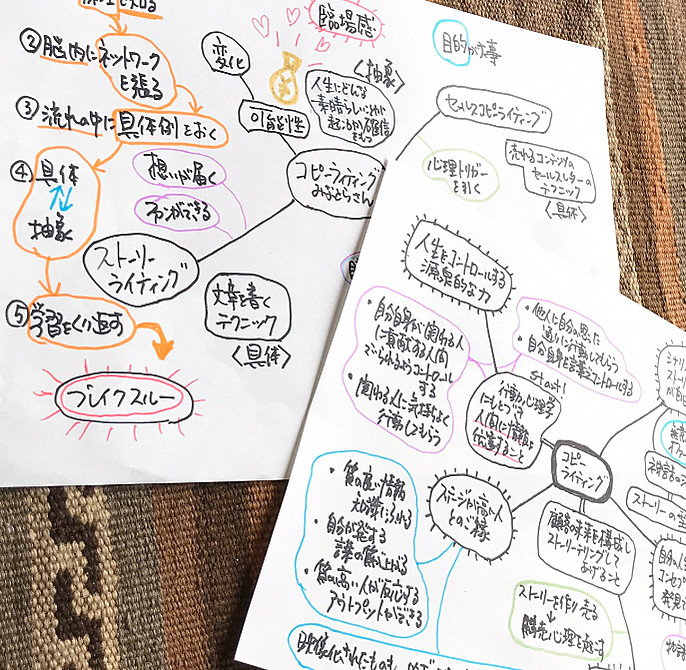 ②脳内にネットワーク
を張る
③流れの中に具体例をおく
④具体
抽象
⑤学習をくり返す
ブレイクスルー
変化
臨場感
可能性
<抽象>
人生にどんな
素晴らしいことが
起こるか確信
をもつ
想いが届く
ファンができる
コピーライティング
みなとらさん
ストーリー
ライティング
文章を書く
テクニック
<具体>
目的が大事
セールスコピーライティング
心理トリガー
を引く
売れるコンテンツの
セールスレターの
テクニック
<具体>
人生をコントロールする
源泉的な力
・自分自身が関わる人
に貢献する人間
でいられるようコントロール
する
・関わる人に気持ちよく
行動してもらう
・他人に自分の思った
通りに行動してもらう
・自分自身を言葉でコントロールする
start!
行動心理学
にもとづき
人間に情報を
伝達すること
コピー
ライティング
ステージが高い人
とのご縁
・質の高い情報
・自分が発する
言葉の質が上がる
・質の高い人が反応する
アウトプットができる
顧客の未来を構成し
ストーリーテリングして
あげること
ストーリーを作り売る
購売心理を促す
ストーリーの型